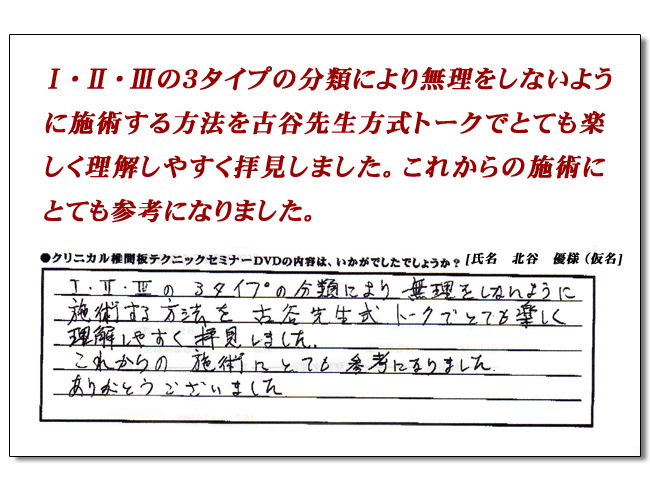 Ⅰ・Ⅱ・Ⅲの3タイプの分類により無理をしないよう
に施術する方法を古谷先生方式トークでとても楽
しく理解しやすく拝見しました。これからの施術に
とても参考になりました。
●クリニカル椎間板テクニックセミナーDVDの内容は、いかがでしたでしょうか？ [氏名 北谷 優様（仮名]
Ⅰ・Ⅱ・Ⅲの 3タイプの分類により 無理をしないように
施術する方法を 古谷先生式 トークでとても楽しく
理解しやすく拝見しました.
これからの 施術にとても 参考になりました.
ありがとうございました